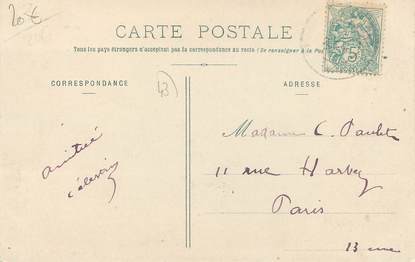 20 €
CARTE POSTALE
Tous les pays étrangers n'acceptent pas la correspondance au recto (Se renseigner à la Pos
CORRESPONDANCE
43
ADRESSE
5
amitié
Madame C. Paulet
11 rue Harvey
Paris
13 eme